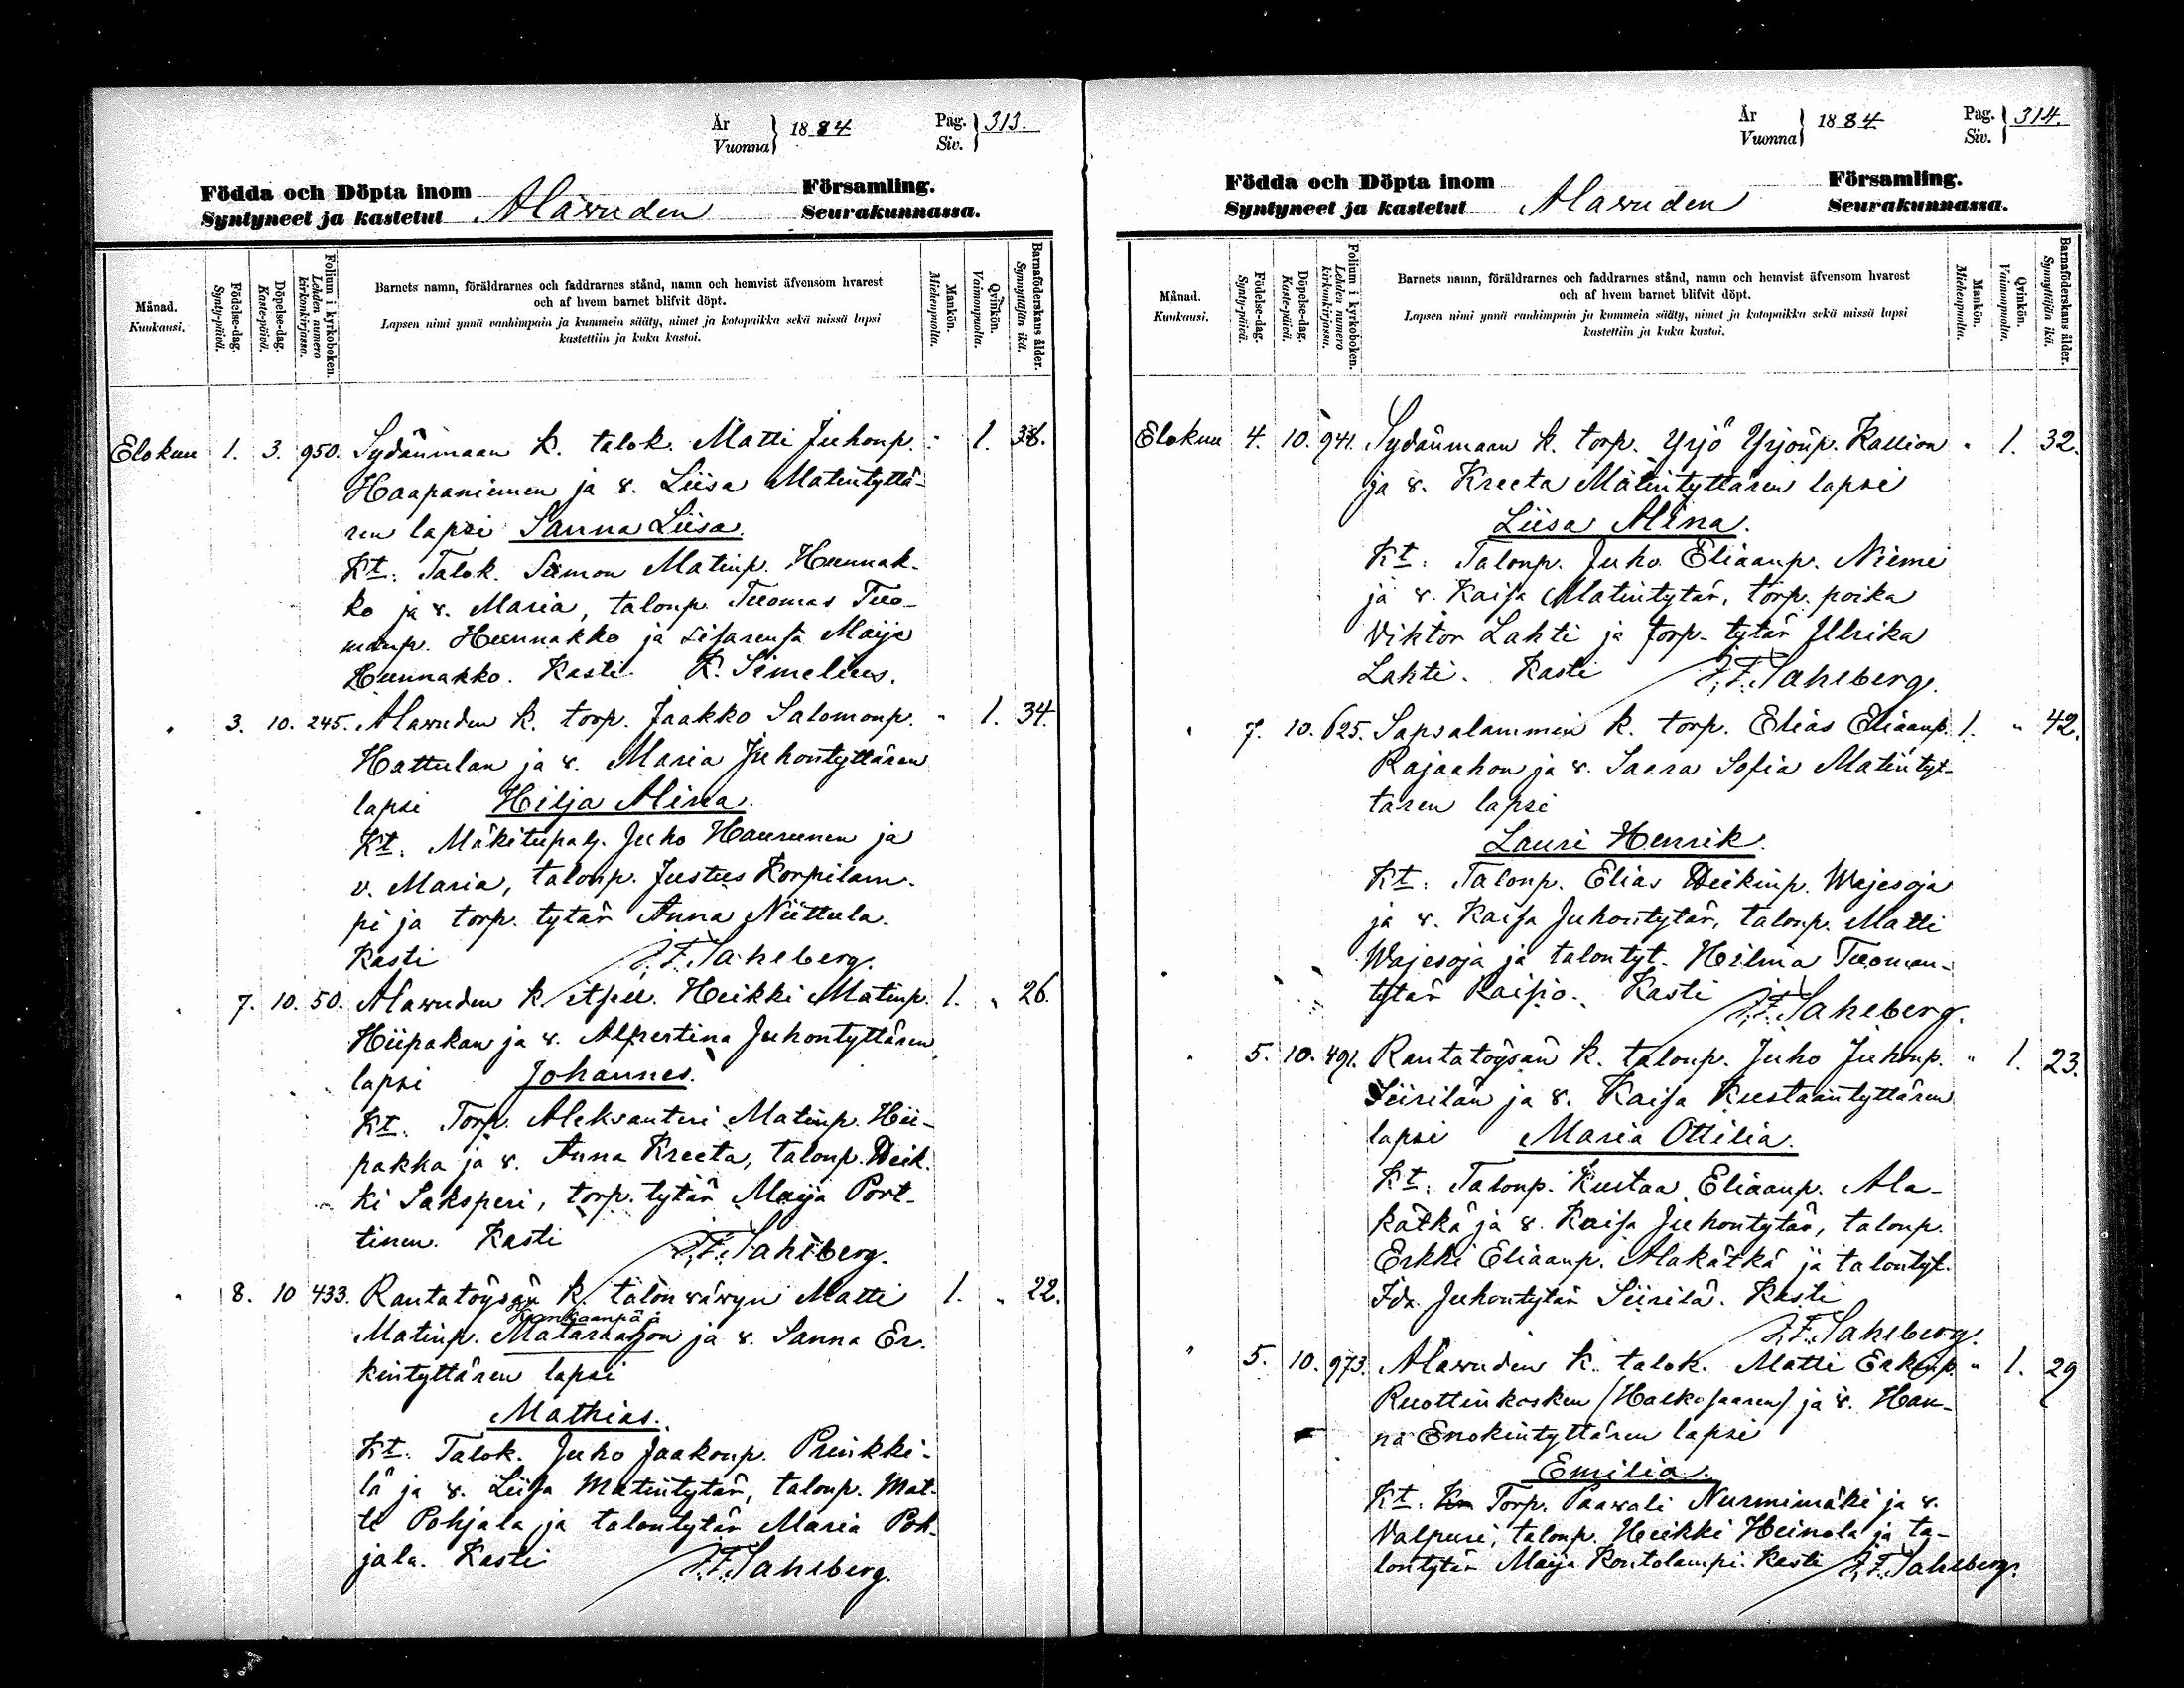 År
Vuonna } 1884
Pag.
Siv. } 313.
Födda och Döpta inom Alavuden Församling.
Syntyneet ja kastetut Seurakunnassa.
Månad.
Kuukausi.
Födelse-dag.
Synty-päivä.
Döpelse-dag.
Kaste-päivä.
Folium i kyrkoboken.
Lehden numero kirkonkirjassa.
Barnets namn, föräldrarnes och faddrarnes stånd, namn och hemvist äfvensom hvarest
och af hvem barnet blifvit döpt.
Lapsen nimi ynnä vanhimpain ja kummein sääty, nimet ja kotopaikka sekä missä lapsi
kastettiin ja kuka kastoi.
Mankön.
Miehenpuolta.
Qvinkön.
Vaimonpuolta.
Barnaföderskans ålder.
Synnyttäjän ikä.
Elokuu 1. 3. 950. Sydänmaan k. talok. Matti Juhonp. " 1. 38.
Haapaniemen ja v. Liisa Matintyttä-
ren lapsi Sanna Liisa.
Kt: Talok. Simon Matinp. Hunnak-
ko ja v. Maria, talonp. Tuomas Tuo-
manp. Hunnakko ja sisarensa Maija
Hunnakko. Kasti K. Simelius.
" 3. 10. 245. Alavuden k. torp. Jaakko Salomonp. " 1. 34.
Hattulan ja v. Maria Juhontyttären
lapsi Hilja Alina.
Kt: Mäkitupalj. Juho Haurunen ja
v. Maria, talonp. Justus Korpilam-
pi ja torp. tytär Anna Niittula.
Kasti J.F. Sahlberg.
" 7. 10. 50. Alavuden k. Heikki Matinp. 1. " 26.
Hiipakan ja v. Alpertina Juhontyttären
lapsi Johannes.
Kt: Torp. Aleksanteri Matinp. Hii-
pakka ja v. Anna Kreeta, talonp. Heik-
ki Saksperi, torp. tytär Maija Port-
tinen. Kasti J.F. Sahlberg.
" 8. 10 433. Rantatöysän k. talon vävyn Matti 1. " 22.
Kankaanpää
Matinp. ja v. Sanna Er-
kintyttären lapsi
Mathias.
Kt: Talok. Juho Jaakonp. Prinkki-
lä ja v. Liisa Matintytär, talonp. Mat-
ti Pohjala ja talontytär Maria Poh-
jala. Kasti J.F. Sahlberg.
År
Vuonna } 1884
Pag.
Siv. } 314.
Födda och Döpta inom Alavuden Församling.
Syntyneet ja kastetut Seurakunnassa.
Månad.
Kuukausi.
Födelse-dag.
Synty-päivä.
Döpelse-dag.
Kaste-päivä.
Folium i kyrkoboken.
Lehden numero kirkonkirjassa.
Barnets namn, föräldrarnes och faddrarnes stånd, namn och hemvist äfvensom hvarest
och af hvem barnet blifvit döpt.
Lapsen nimi ynnä vanhimpain ja kummein sääty, nimet ja kotopaikka sekä missä lapsi
kastettiin ja kuka kastoi.
Mankön.
Miehenpuolta.
Qvinkön.
Vaimonpuolta.
Barnaföderskans ålder.
Synnyttäjän ikä.
Elokuu 4. 10. 941. Sydänmaan k. torp. Yrjö Yrjönp. Kallion " 1. 32.
ja v. Kreeta Matintyttären lapsi
Liisa Alina.
Kt: Talonp. Juho Eliaanp. Niemi
ja v. Kaisa Matintytär, torp. poika
Viktor Lahti ja torp. tytär Ulrika
Lahti. Kasti J.F. Sahlberg.
" 7. 10. 625. Sapsalammin k. torp. Elias Eliaanp. 1. " 42.
Rajaahon ja v. Saara Sofia Matintyt-
tären lapsi
Lauri Henrik.
Kt: Talonp. Elias Heikinp. Wajesoja
ja v. Kaisa Juhontytär, talonp. Matti
Wajesoja ja talontyt. Hilma Tuoman-
tytär Kaisio. Kasti J.F. Sahlberg.
" 5. 10. 491. Rantatöysän k. talonp. Juho Juhonp. " 1. 23.
Siirilän ja v. Kaisa Kustaantyttären
lapsi Maria Ottilia.
Kt: Talonp. Kustaa Eliaanp. Ala-
kätkä ja v. Kaisa Juhontytär, talonp.
Erkki Eliaanp. Alakätkä ja talontyt.
Ida Juhontytär Siirilä. Kasti
J.F. Sahlberg.
" 5. 10. 973. Alavuden k. talok. Matti Erkinp. " 1. 29
Ruottinkosken (Halkosaaren) ja v. Han-
na Enokintyttären lapsi
Emilia.
Kt: Torp. Paavali Nurmimäki ja v.
Valpuri, talonp. Heikki Heinola ja ta-
lontytär Maija Kontolampi. Kasti J.F. Sahlberg.